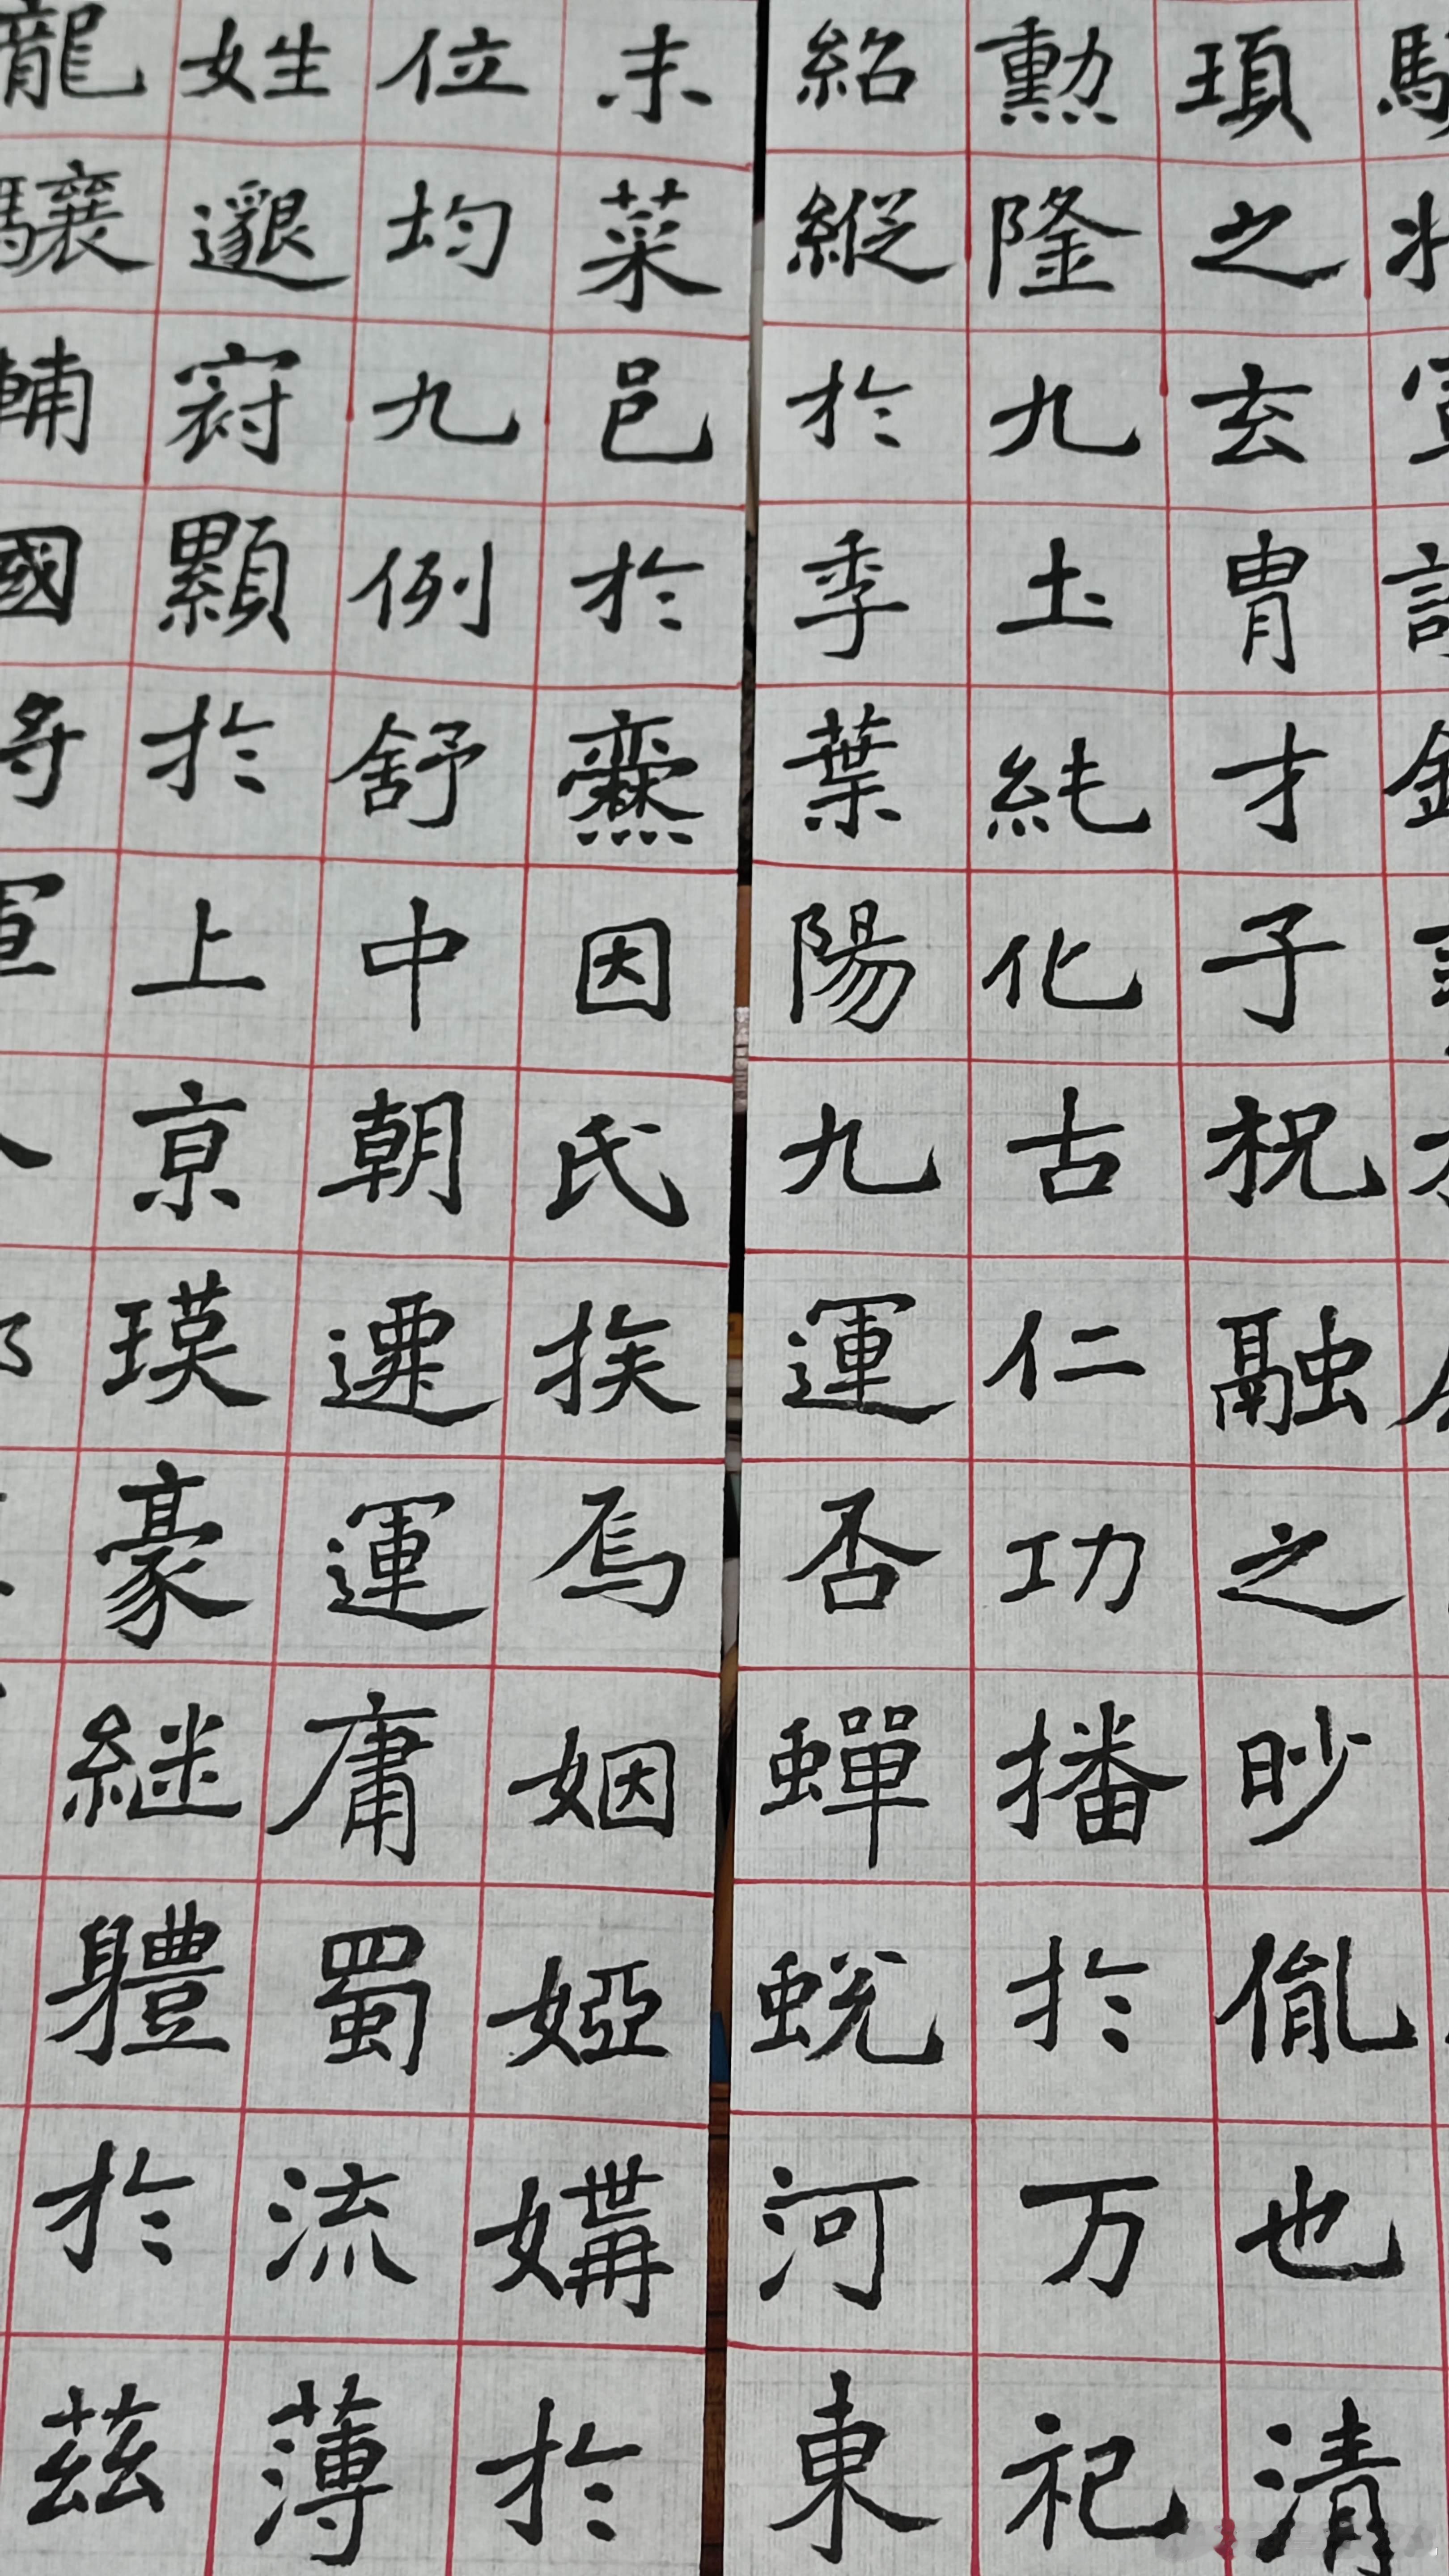 頊之玄胄才子祝融之眇胤也清
勳隆九土純化古仁功播於万祀
紹縱於季葉陽九運否蟬蛻河東
末菜邑於爨因氏族焉姻婭媾於
位均九例舒中朝遷運庸蜀流薄
姓邈冠顯於上京瑛豪繼體於茲
龍驤輔國將軍